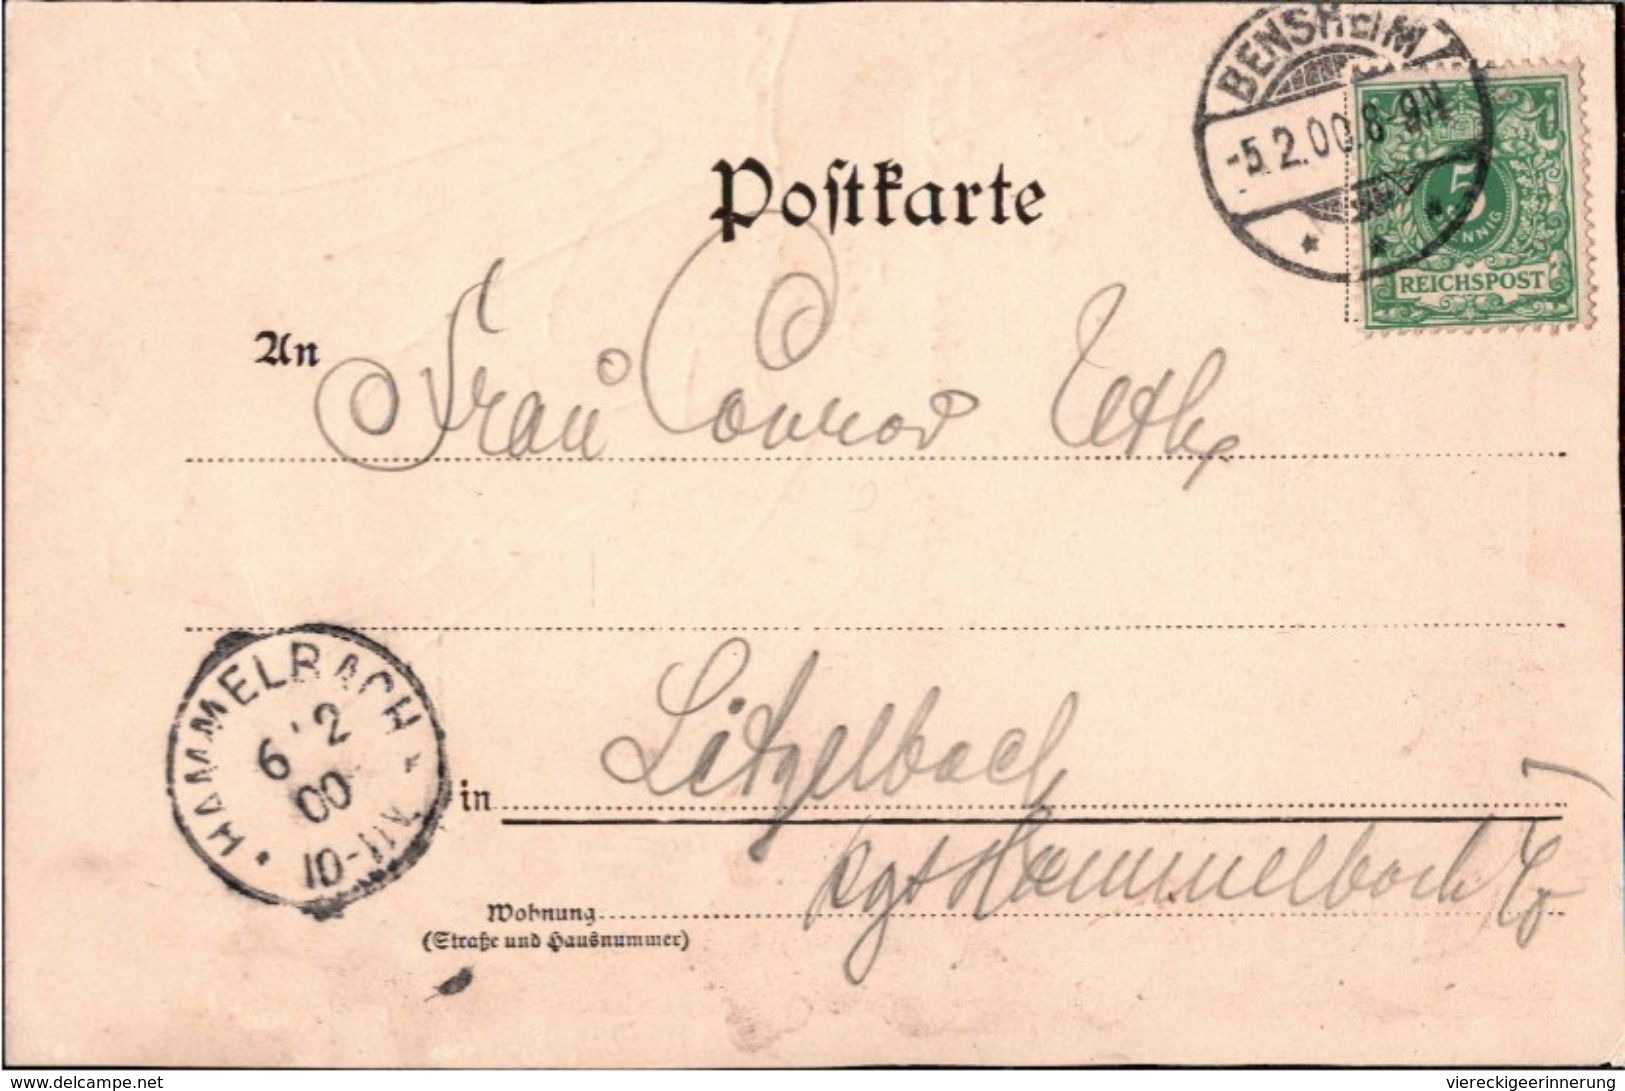 BENSHEIM
-5.2.00. 8-9N
5
PFENNIG
REICHSPOST
Postkarte
An Frau Conrad
HAMMELBACH
6 2
00
10-11V
in Litzelbach
Hammelbach
Wohnung
(Straße und Hausnummer)
www.delcampe.net
viereckigeerinnerung